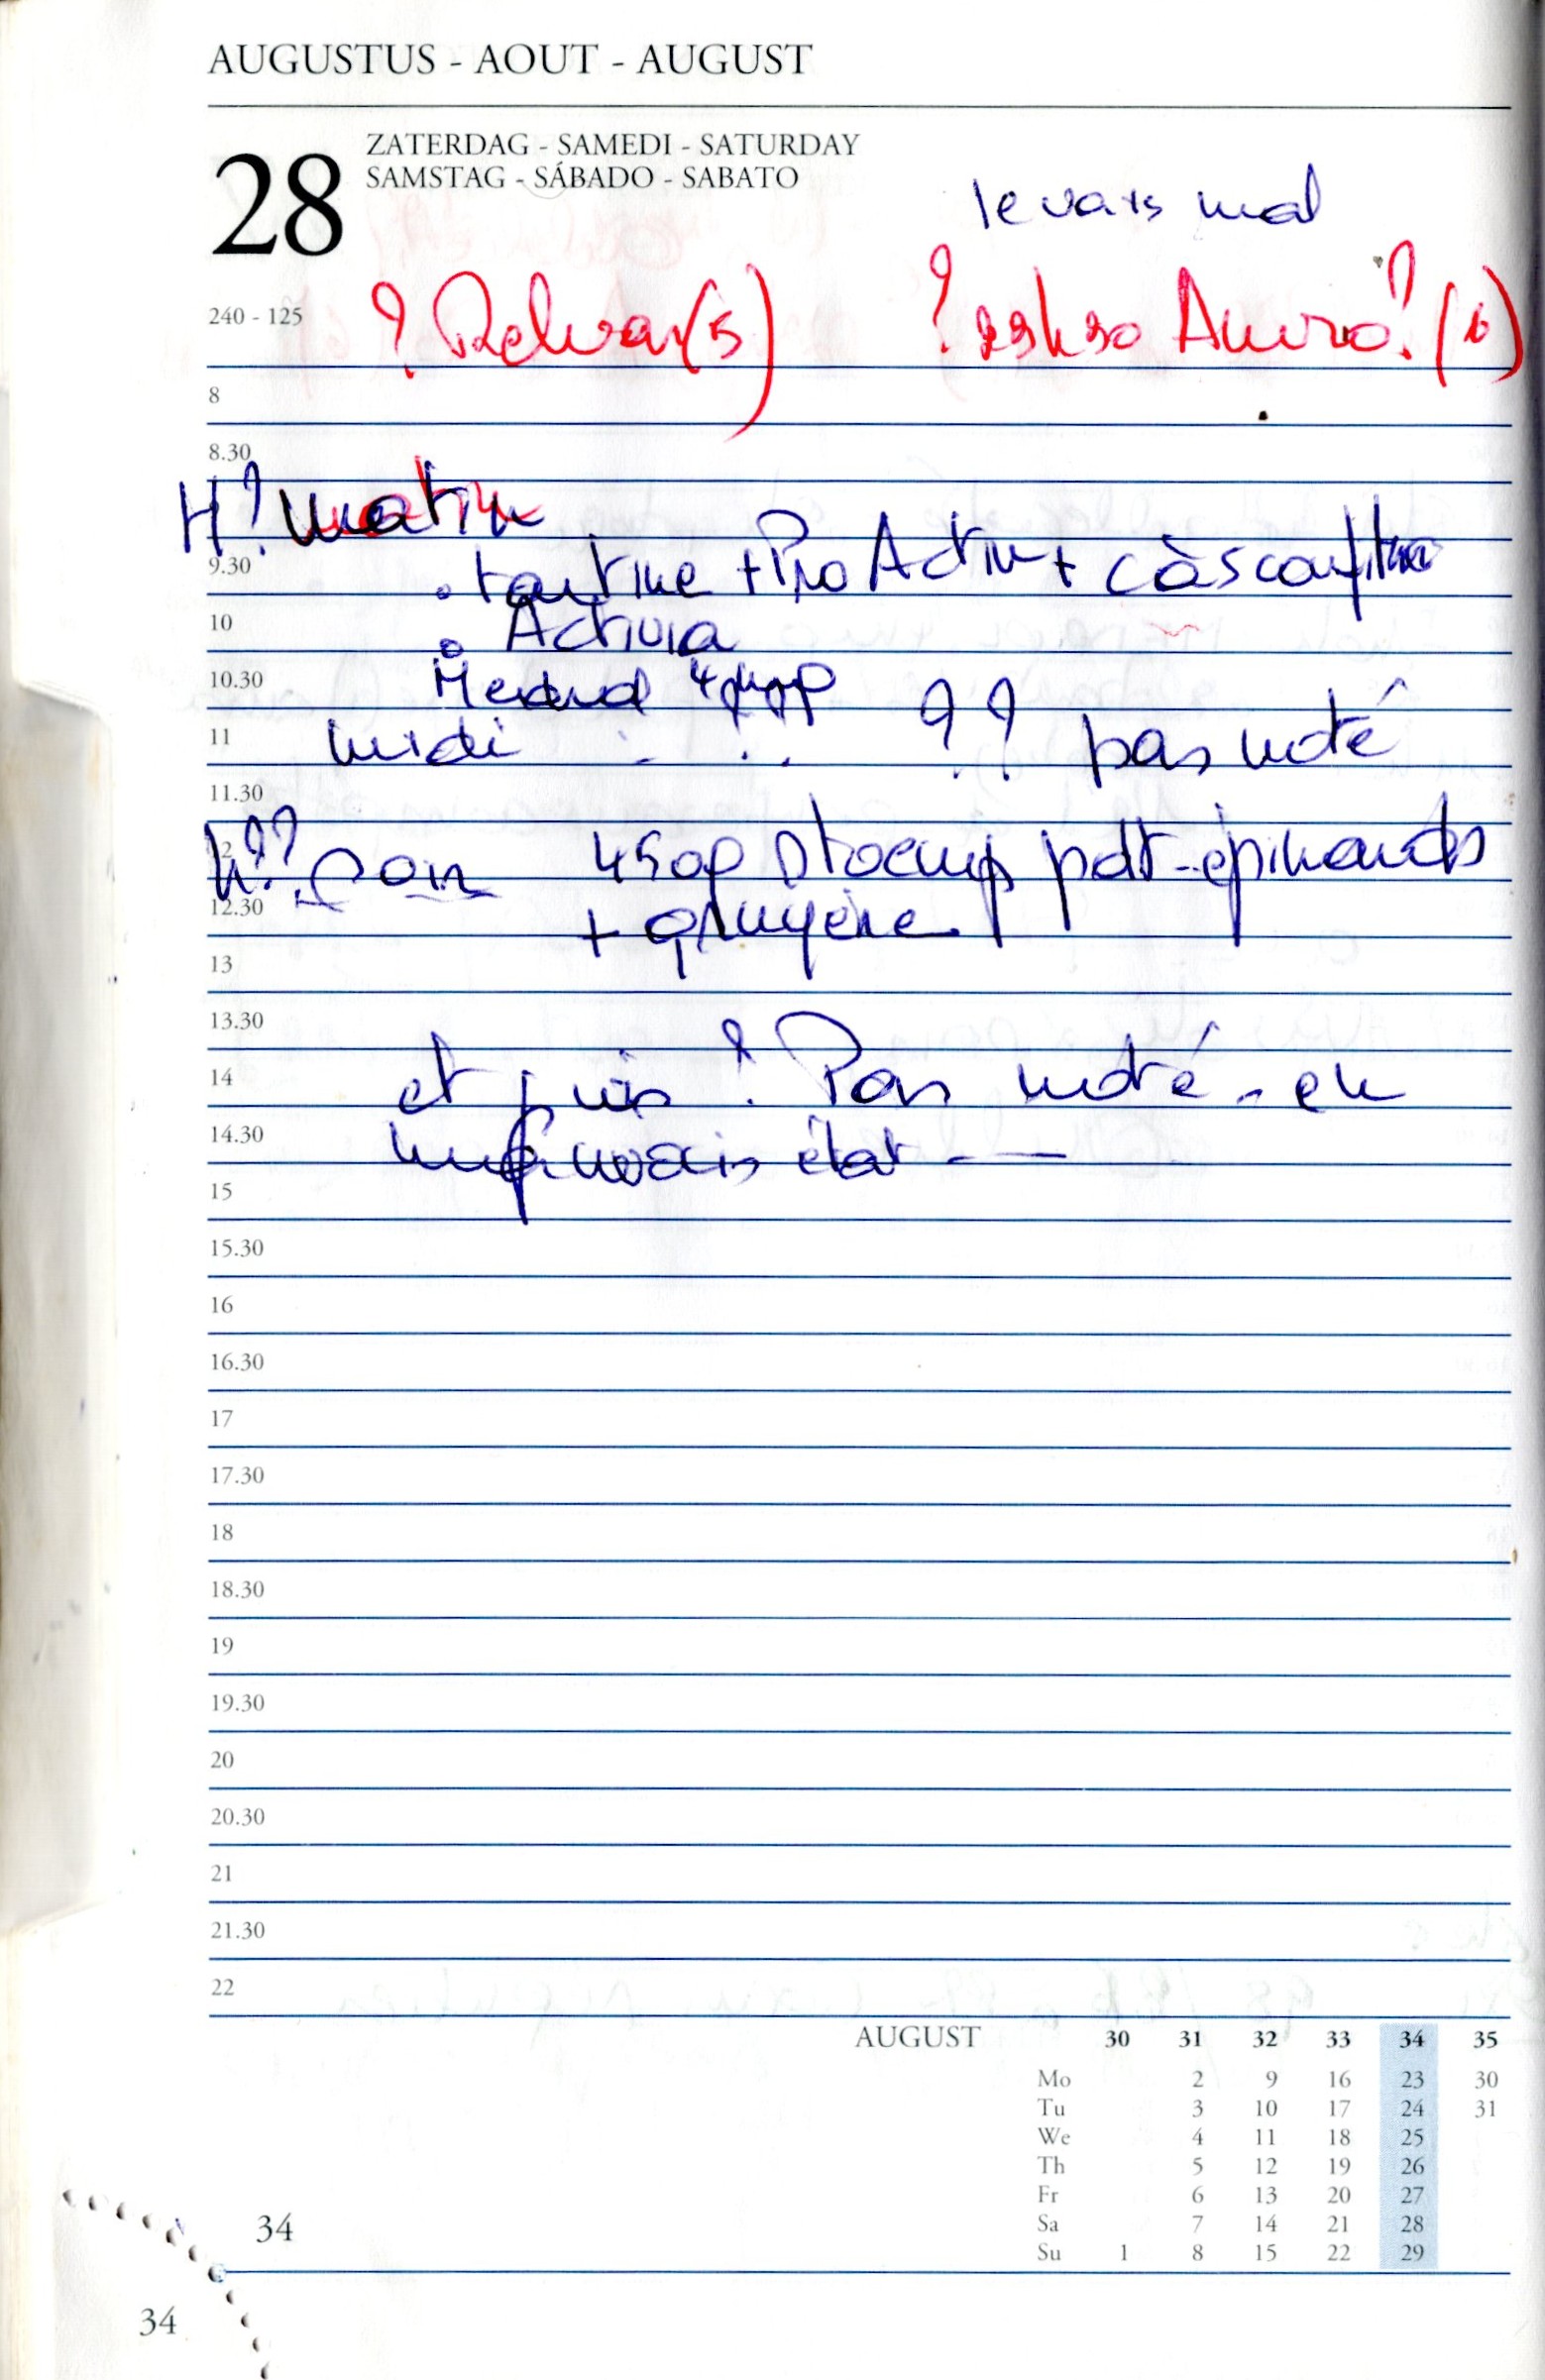 AUGUSTUS - AOUT - AUGUST
28
ZATERDAG - SAMEDI - SATURDAY
SAMSTAG - SÁBADO - SABATO
vais mal
240 - 125
? (5) ? ? (6)
8
8.30
H? matin
9.30
. tartine + Pro Activ + càs confiture
10
. Activia
10.30
11
midi . . . ?? pas noté
11.30
12
h?? soir 450g Stoemp pdt-épinards
12.30
+ gruyère
13
13.30
14
et puis ? Pas noté - en
14.30
mauvais état -
15
15.30
16
16.30
17
17.30
18
18.30
19
19.30
20
20.30
21
21.30
22
AUGUST 30 31 32 33 34 35
Mo 2 9 16 23 30
Tu 3 10 17 24 31
We 4 11 18 25
Th 5 12 19 26
Fr 6 13 20 27
Sa 7 14 21 28
Su 1 8 15 22 29
34
34